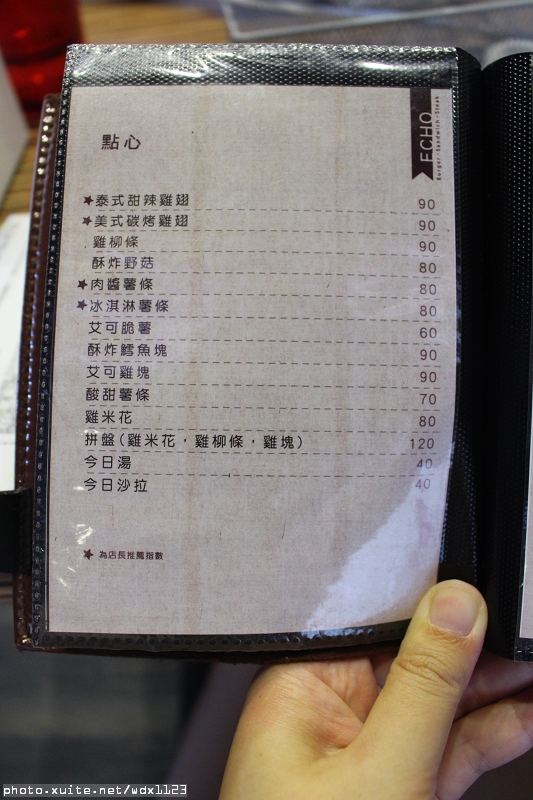 ECHO
Burger·Sandwich·Steak
點心
★泰式甜辣雞翅 90
★美式碳烤雞翅 90
雞柳條 90
酥炸野菇 80
★肉醬薯條 80
★冰淇淋薯條 80
艾可脆薯 60
酥炸鱈魚塊 90
艾可雞塊 90
酸甜薯條 70
雞米花 80
拼盤(雞米花,雞柳條,雞塊) 120
今日湯 40
今日沙拉 40
★ 為店長推薦指數
photo.xuite.net/wdx1123